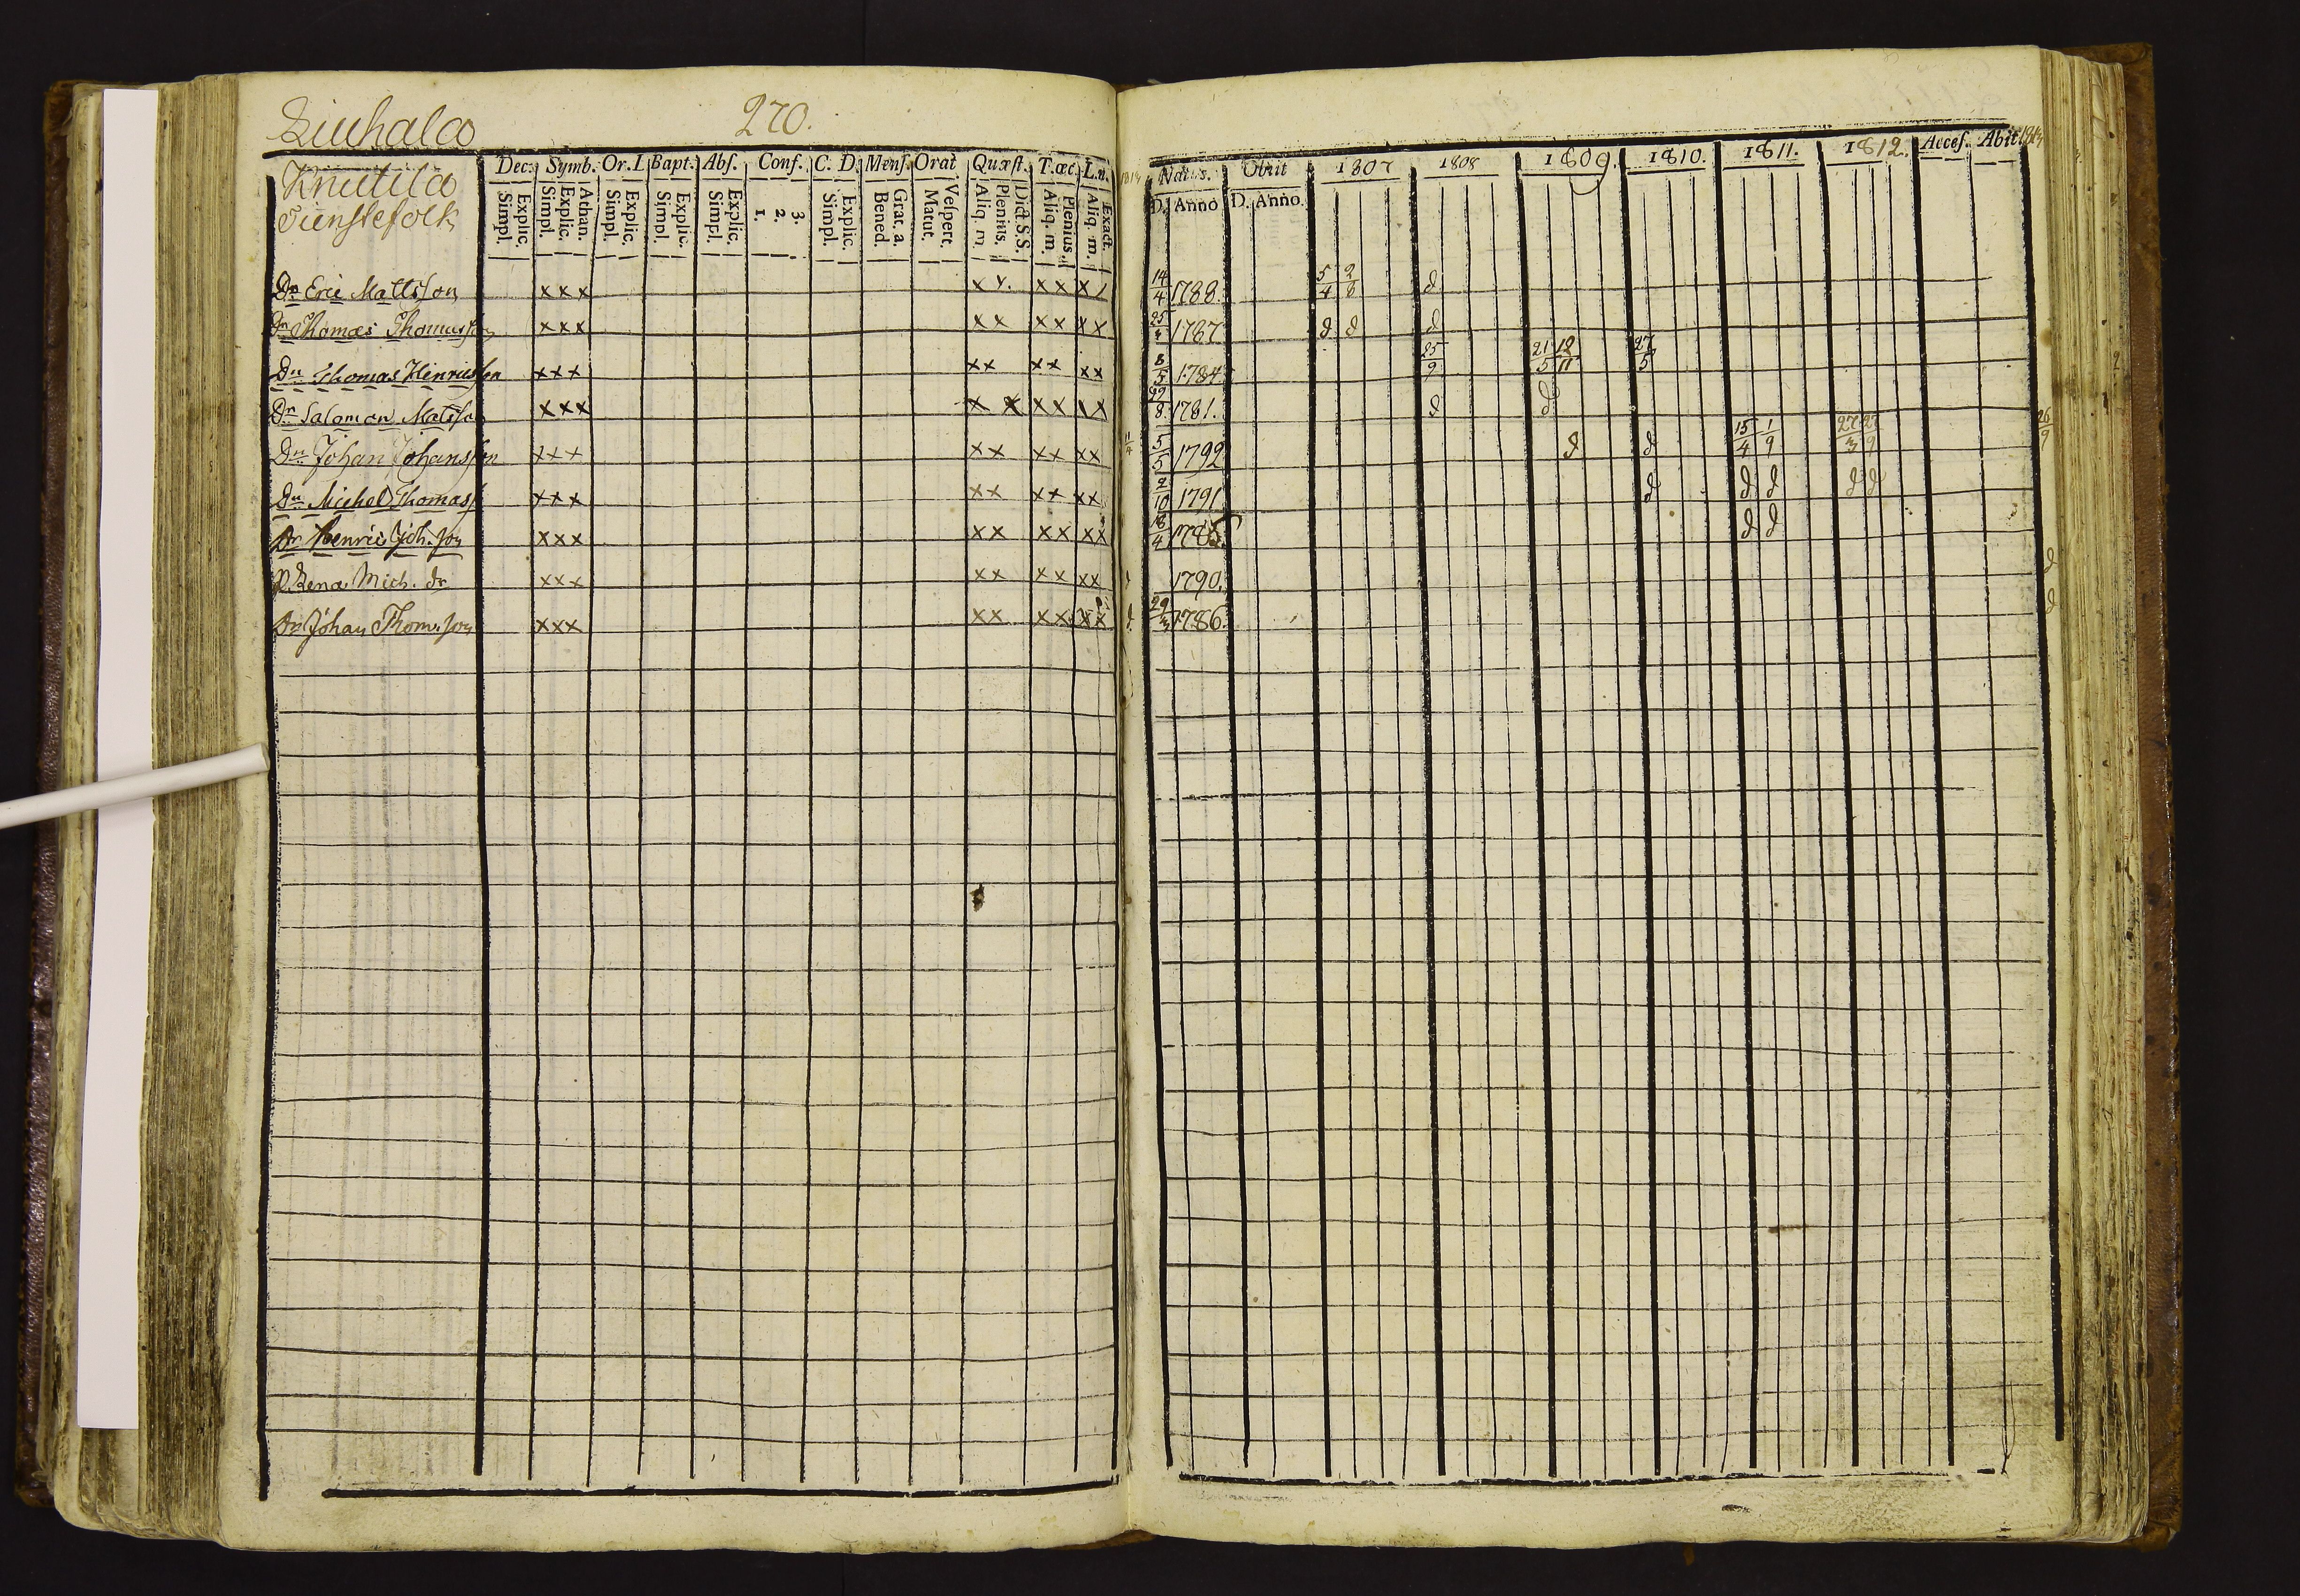 Liuhala 270.
Knutila
Tienstefolk
Dec. Symb. Or. L Bapt. Abſ. Conf. C. D. Menſ. Orat. Quæſt. T. œc. L. n.
Simpl. Explic. Simpl. Explic. Athan. Simpl. Explic. Simpl. Explic. Simpl. Explic. 1. 2. 3. Simpl. Explic. Bened. Grat. a. Matut. Veſpert. Aliq. m. Plenius. Dict. S. S. Aliq. m. Plenius. Aliq. m. Exact.
Natus. Obiit 1807 1808 1809. 1810. 1811. 1812. Acceſ. Abiit
D. Anno D. Anno.
Dn Eric Mattsson xxx xx xx xx 14/4 1788. 5/4 2/8 d
Dn Thomas Thomasson xxx xx xx xx 25 1787 d d d
Dn Thomas Henricsson xxx xx xx xx 8/5 1784 25/9 21/5 12/11 27/5
Dn Salomon Matsson xxx xx xx xx 8 1781. d d
Dn Johan Johansson xxx xx xx xx 5/5 1792 d d 15/4 1/9 27/3 27/9 26/9
Dn Michel Thomass xxx xx xx xx 2/10 1791 d d d d d
Dr Henric Joh. son xxx xx xx xx 18/4 1785. d d
P. Lena Mich. dr xxx xx xx xx 1790. d
Dr Johan Thom. son xxx xx xx xx 29/3 1786. d